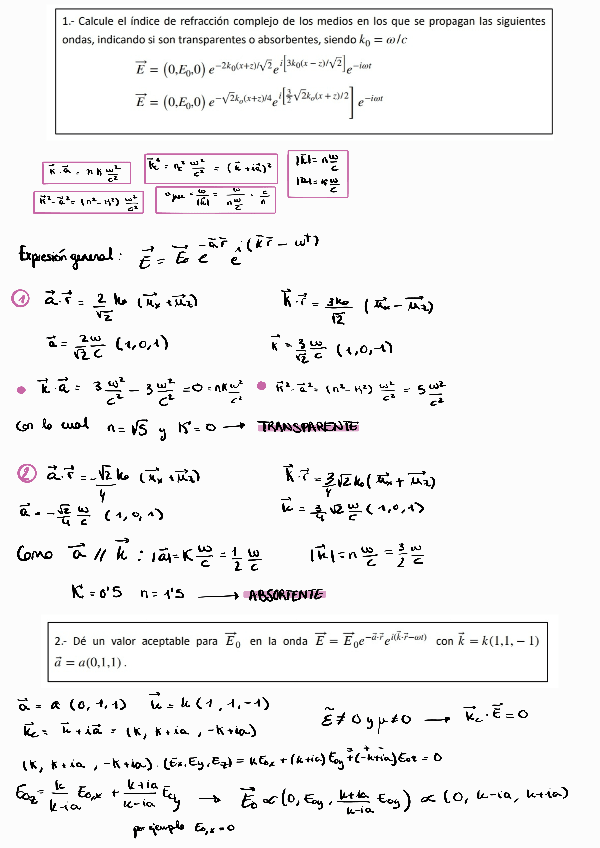 1.- Calcule el índice de refracción complejo de los medios en los que se propagan las siguientes
ondas, indicando si son transparentes o absorbentes, siendo k₀ = ω/c
E⃗ = (0,E₀,0) e^{-2k₀(x+z)/√2} e^{i[3k₀(x-z)/√2]} e^{-iωt}
E⃗ = (0,E₀,0) e^{-√2k₀(x+z)/4} e^{i[3/2 √2k₀(x+z)/2]} e^{-iωt}
k⃗·a⃗ = n K ω²/c²
k⃗c² = nc² ω²/c² = (k⃗+ia⃗)²
|k⃗| = n ω/c
|a⃗| = K ω/c
k⃗²-a⃗² = (n²-K²) ω²/c²
= ω/|k⃗| = ω/(n ω/c) = c/n
Expresión general: E⃗ = E⃗₀ e^{-a⃗r⃗} e^{i(k⃗r⃗-ωt)}
① a⃗·r⃗ = 2/√2 k₀ (u⃗x+u⃗z) k⃗·r⃗ = 3k₀/√2 (u⃗x-u⃗z)
a⃗ = 2/√2 ω/c (1,0,1) k⃗ = 3/√2 ω/c (1,0,-1)
• k⃗·a⃗ = 3 ω²/c² - 3 ω²/c² = 0 = nK ω²/c² • k⃗²-a⃗² = (n²-K²) ω²/c² = 5 ω²/c²
Con lo cual n = √5 y K = 0 → TRANSPARENTE
② a⃗·r⃗ = -√2/4 k₀ (u⃗x+u⃗z) k⃗·r⃗ = 3/4 √2 k₀ (u⃗x+u⃗z)
a⃗ = -√2/4 ω/c (1,0,1) k⃗ = 3/4 √2 ω/c (1,0,1)
Como a⃗ // k⃗ : |a⃗| = K ω/c = 1/2 ω/c |k⃗| = n ω/c = 3/2 ω/c
K = 0'5 n = 1'5 → ABSORTENTE
2.- Dé un valor aceptable para E⃗₀ en la onda E⃗ = E⃗₀e^{-a⃗·r⃗}e^{i(k⃗·r⃗-ωt)} con k⃗ = k(1,1,-1)
a⃗ = a(0,1,1) .
a⃗ = a (0,1,1) k⃗ = k (1,1,-1)
k⃗c = k⃗+ia⃗ = (k, k+ia, -k+ia) ε̃ ≠ 0 y μ ≠ 0 → k⃗c·E⃗ = 0
(k, k+ia, -k+ia)·(Ex,Ey,Ez) = kE₀x + (k+ia)E₀y + (-k+ia)E₀z = 0
E₀z = k/(k-ia) E₀,x + (k+ia)/(k-ia) E₀y → E⃗₀ ∝ (0, E₀y, (k+ia)/(k-ia) E₀y) ∝ (0, k-ia, k+ia)
por ejemplo E₀,x = 0